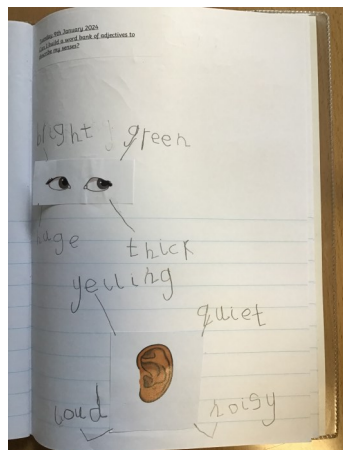 9th January 2024
build a word bank of adjectives to
my senses?
bright green
huge thick
yelling
quiet
loud noisy